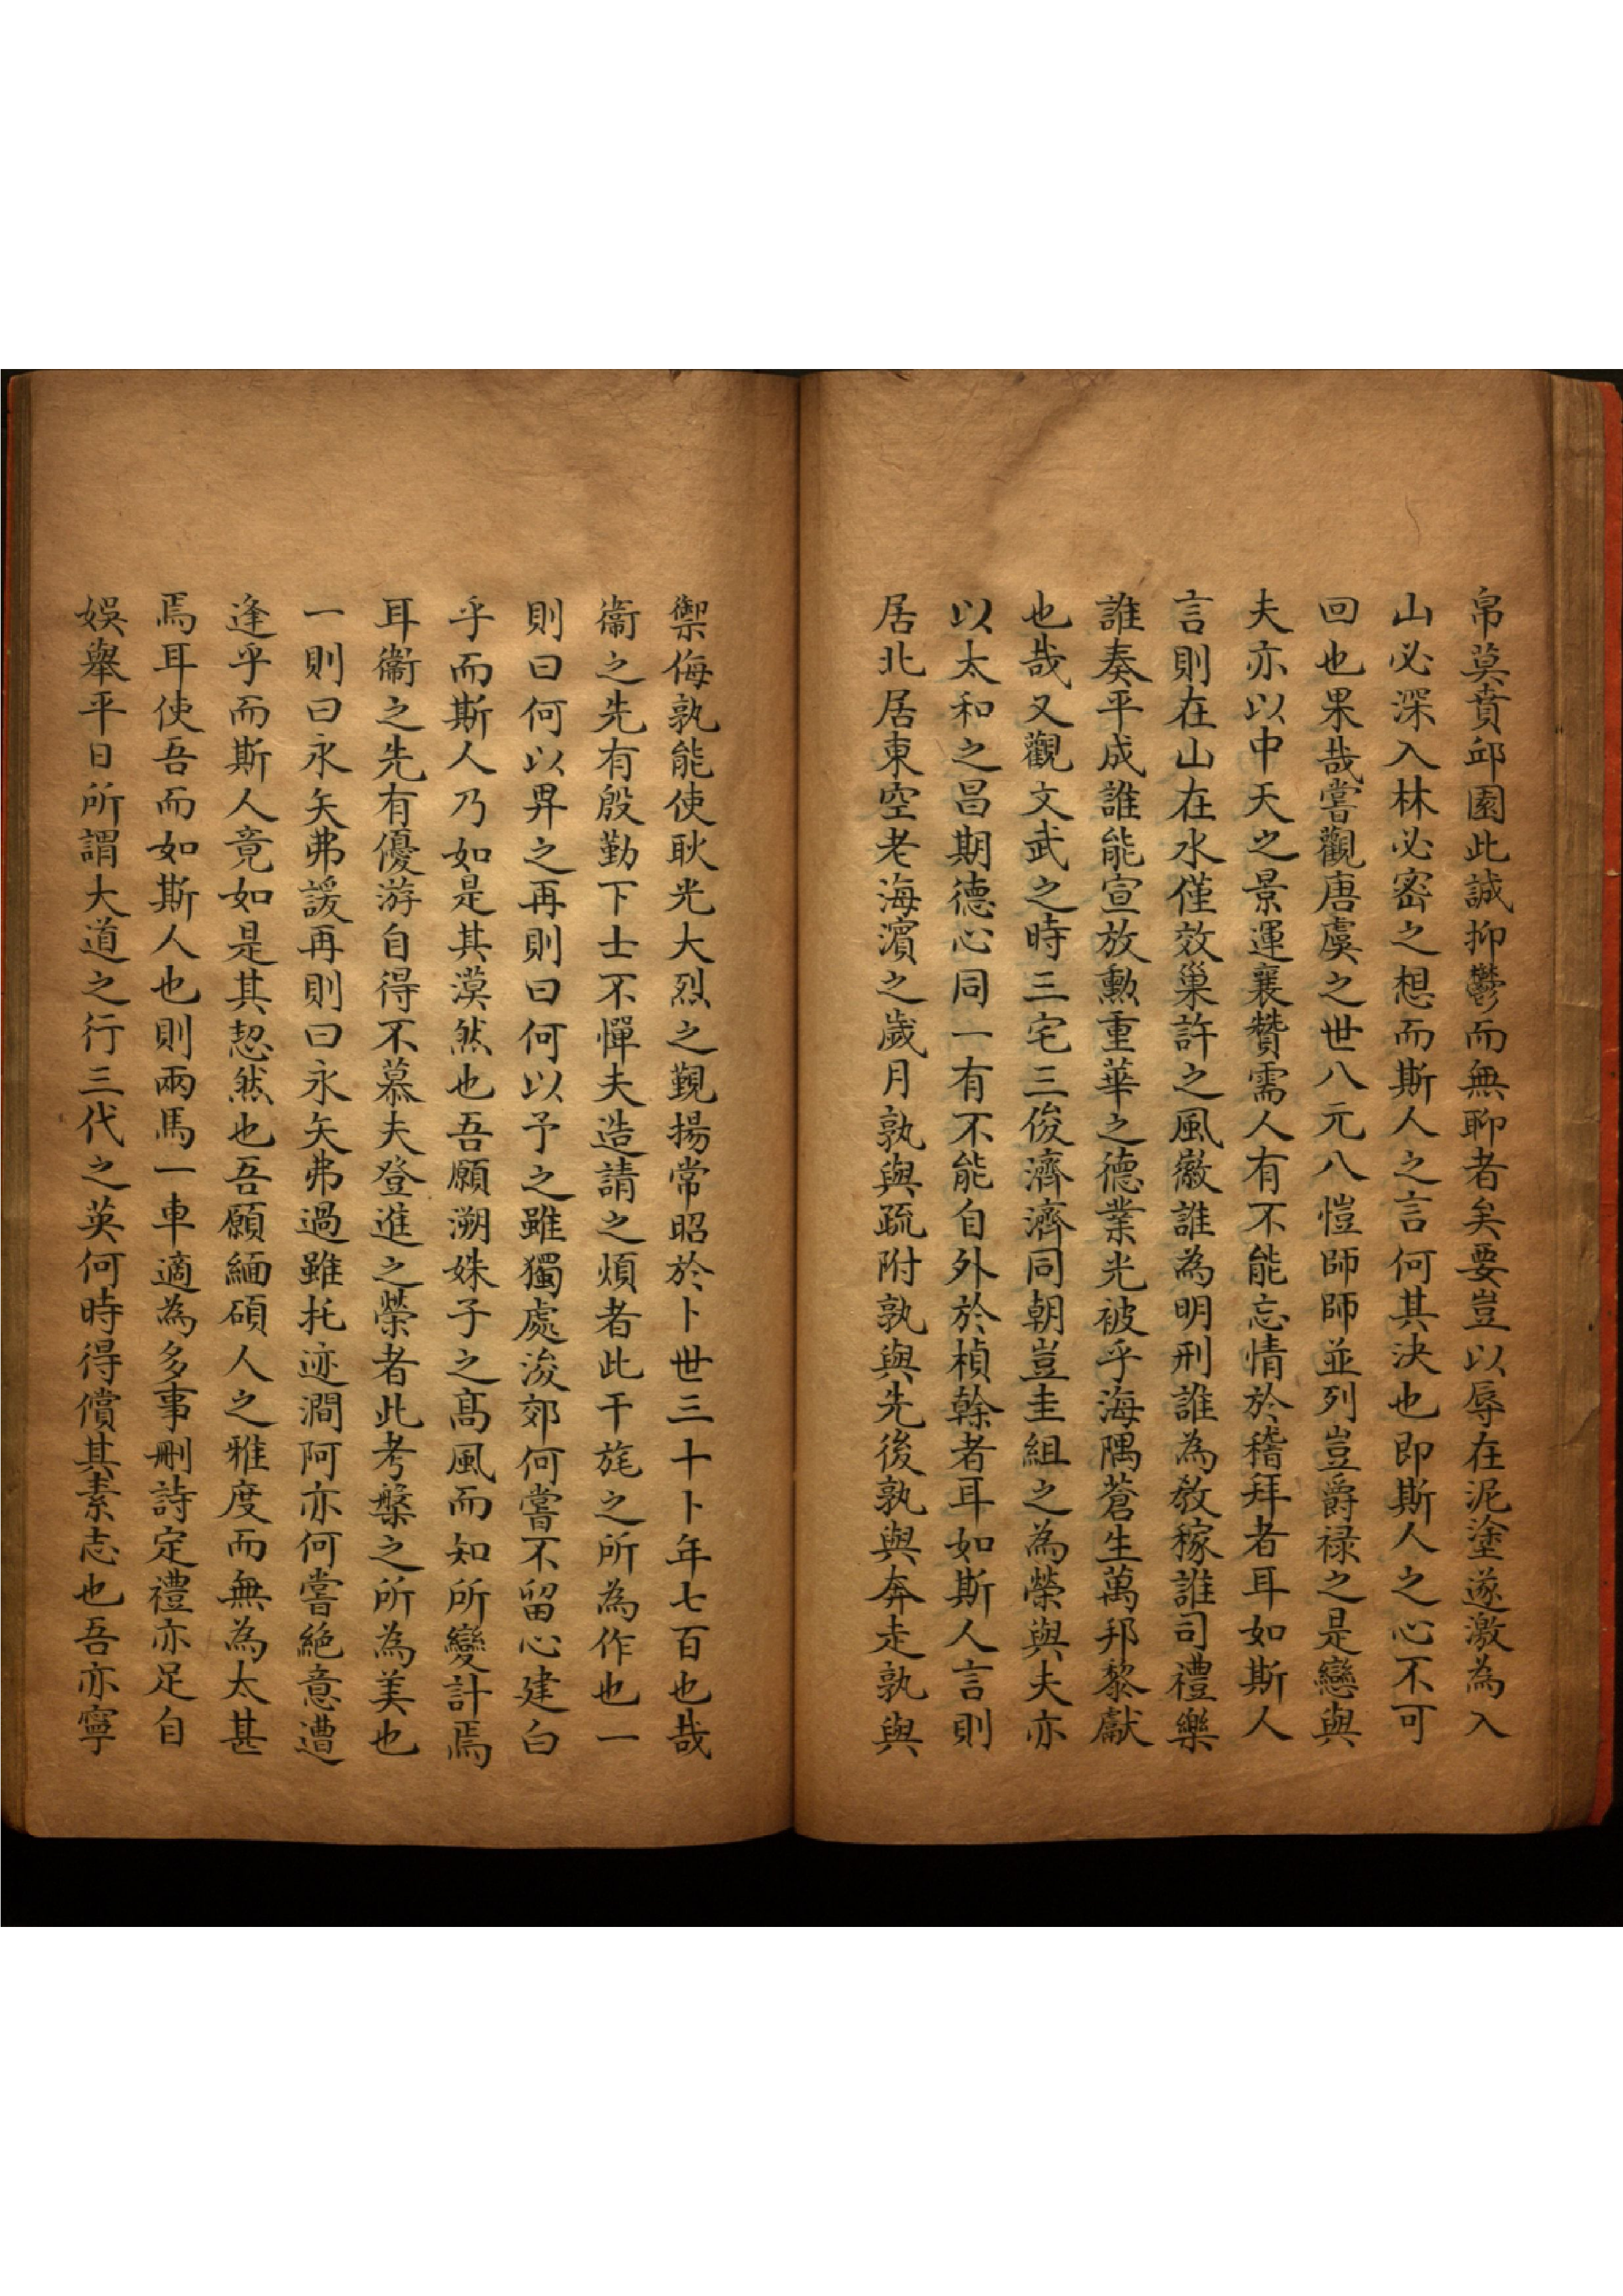 帛莫賁邱園此誠抑鬱而無聊者矣要豈以辱在泥塗遂激為入
山必深入林必密之想而斯人之言何其決也即斯人之心不可
回也果哉嘗觀唐虞之世八元八愷師師並列豈爵祿之是戀與
夫亦以中天之景運襄贊需人有不能忘情於稽拜者耳如斯人
言則在山在水僅效巢許之風徽誰為明刑誰為教稼誰司禮樂
誰奏平成誰能宣放勳重華之德業光被乎海隅蒼生萬邦黎獻
也哉又觀文武之時三宅三俊濟濟同朝豈圭組之為榮與夫亦
以太和之昌期德心同一有不能自外於楨榦者耳如斯人言則
居北居東空老海濱之歲月孰與疏附孰與先後孰與奔走孰與
禦侮孰能使耿光大烈之觀揚常昭於卜世三十卜年七百也哉
衞之先有殷勤下士不憚夫造請之煩者此干旄之所為作也一
則曰何以畀之再則曰何以予之雖獨處浚郊何嘗不留心建白
乎而斯人乃如是其漠然也吾願溯姝子之高風而知所變計焉
耳衞之先有優游自得不慕夫登進之榮者此考槃之所為美也
一則曰永矢弗諼再則曰永矢弗過雖托迹澗阿亦何嘗絕意遭
逢乎而斯人竟如是其恝然也吾願緬碩人之雅度而無為太甚
焉耳使吾而如斯人也則兩馬一車適為多事刪詩定禮亦足自
娛舉平日所謂大道之行三代之英何時得償其素志也吾亦寧